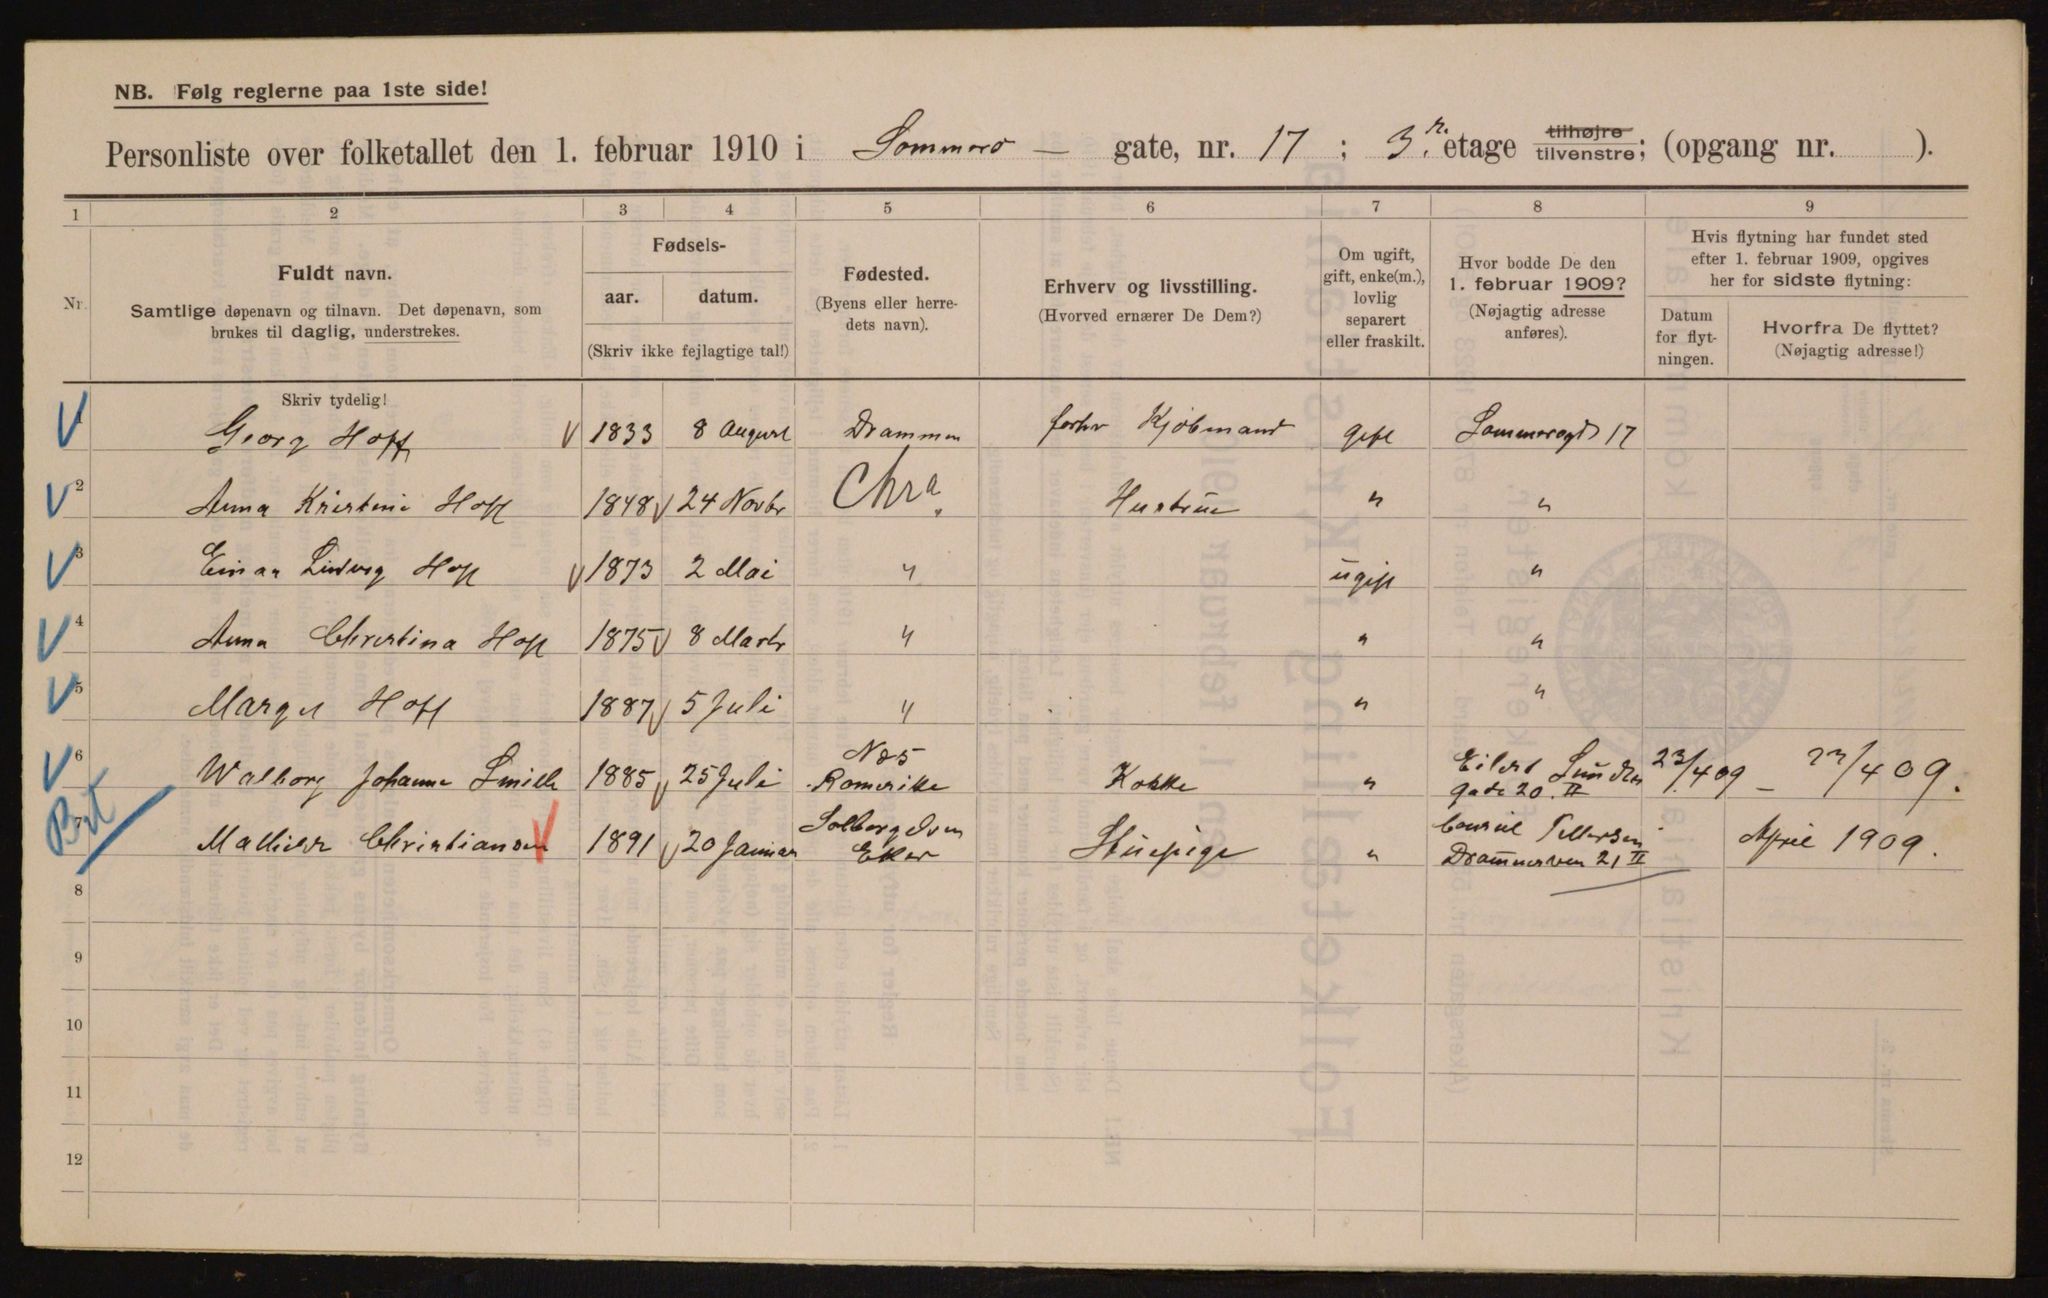 NB. Følg reglerne paa 1ste side!
Personliste over folketallet den 1. februar 1910 i Sommero — gate, nr. 17 ; 3. etage tilhøjre tilvenstre; (opgang nr. ).
1 2 3 4 5 6 7 8 9
Nr.
Fuldt navn.
Samtlige døpenavn og tilnavn. Det døpenavn, som
brukes til daglig, understrekes.
Fødsels-
aar. datum.
(Skriv ikke fejlagtige tal!)
Fødested.
(Byens eller herre-
dets navn).
Erhverv og livsstilling.
(Hvorved ernærer De Dem?)
Om ugift,
gift, enke(m.),
lovlig
separert
eller fraskilt.
Hvor bodde De den
1. februar 1909?
(Nøjagtig adresse
anføres).
Hvis flytning har fundet sted
efter 1. februar 1909, opgives
her for sidste flytning:
Datum
for flyt-
ningen.
Hvorfra De flyttet?
(Nøjagtig adresse!)
Skriv tydelig!
1 Georg Hoff 1833 8 August Drammen forhv Kjøbmand gift Sommerogd 17
2 Anna Kristine Hoff 1848 24 Novbr Chra. Hustrue " "
3 Einar Ludvig Hoff 1873 2 Mai " ugift "
4 Anna Christina Hoff 1875 8 Marts " " "
5 Margit Hoff 1887 5 Juli " " "
6 Walborg Johanne 1885 25 Juli Næs Romerike Kokke " Eilert Sundts gade 20. II 23/4 09 — 23/4 09.
7 Christiansen 1891 20 Januar Eker Stuepige " Drammensven 21 II April 1909.
8
9
10
11
12